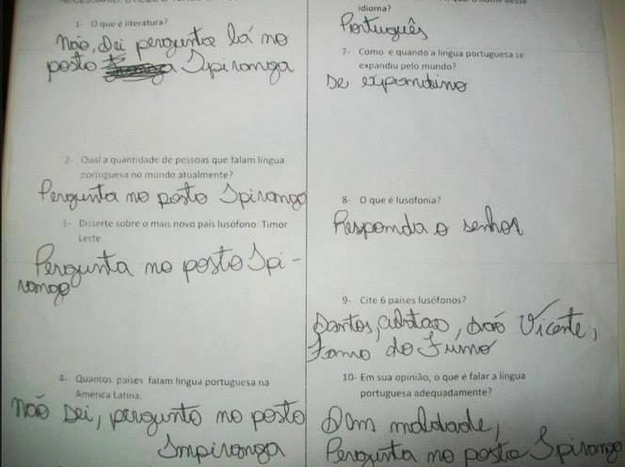 1- O que é literatura?
Não, Dei pergunta lá no
posto Ipiranga
2- Qual a quantidade de pessoas que falam língua
portuguesa no mundo atualmente?
Pergunta no posto Ipiranga
3- Disserte sobre o mais novo país lusófono: Timor
Leste
Pergunta no posto Ipi-
ranga
4- Quantos países falam língua portuguesa na
América Latina.
Não Sei, pergunto no posto
Impiranga
idioma?
Português
7- Como e quando a língua portuguesa se
expandiu pelo mundo?
Se expandino
8- O que é lusofonia?
Responda o senhor
9- Cite 6 países lusófonos?
Santos, cubatao, são Vicente,
10- Em sua opinião, o que é falar a língua
portuguesa adequadamente?
Sam maldade,
Pergunta no posto Ipiranga